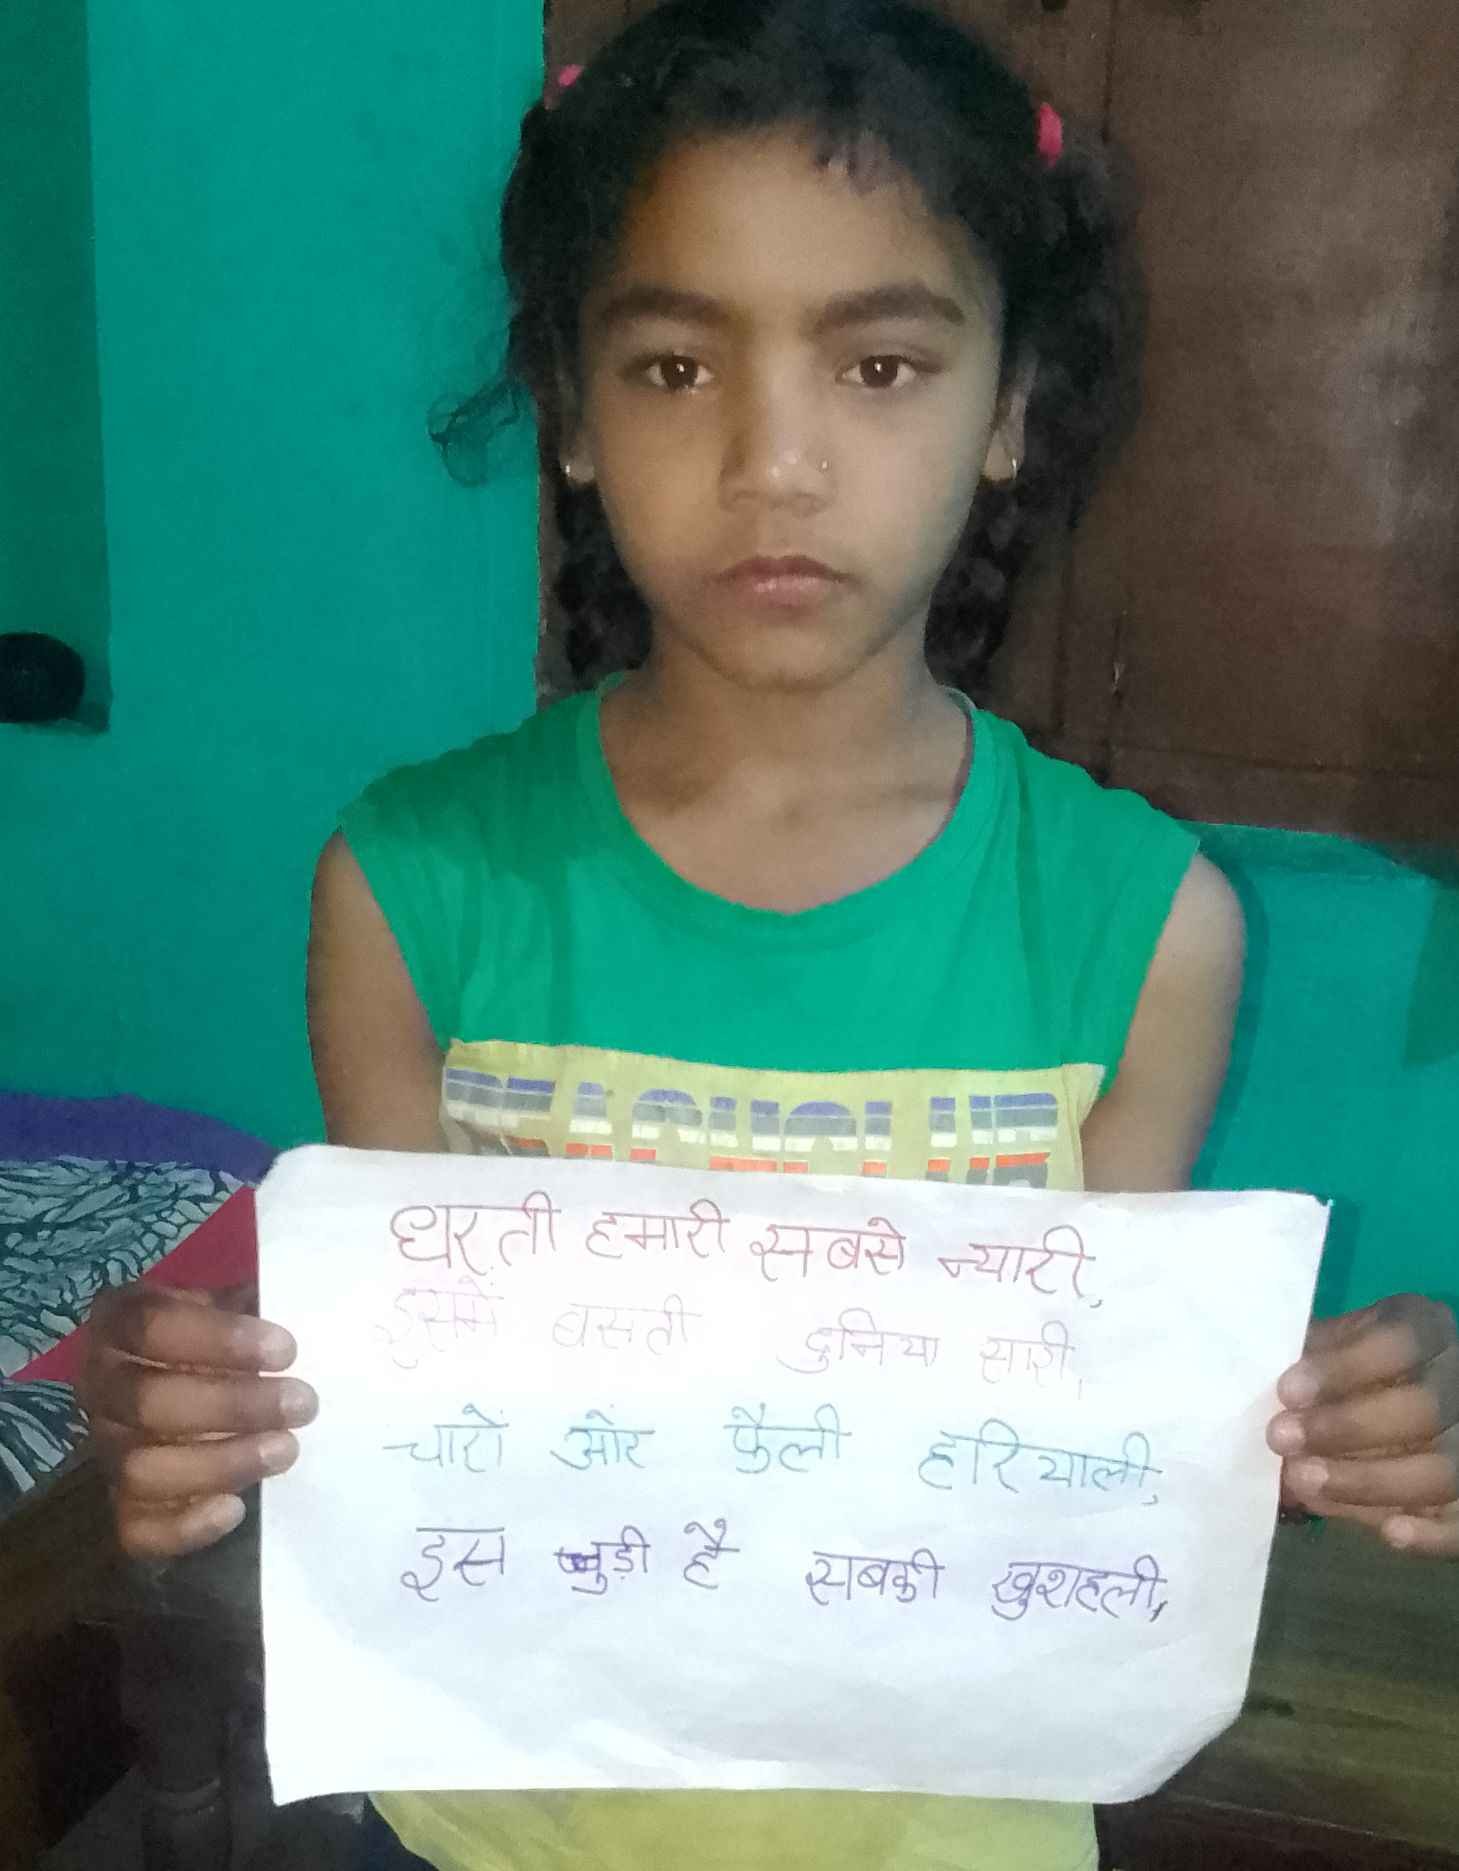 धरती हमारी सबसे न्यारी,
इसमें बसती दुनिया सारी,
चारों ओर फैली हरियाली,
इस जुड़ी है सबकी खुशहली,